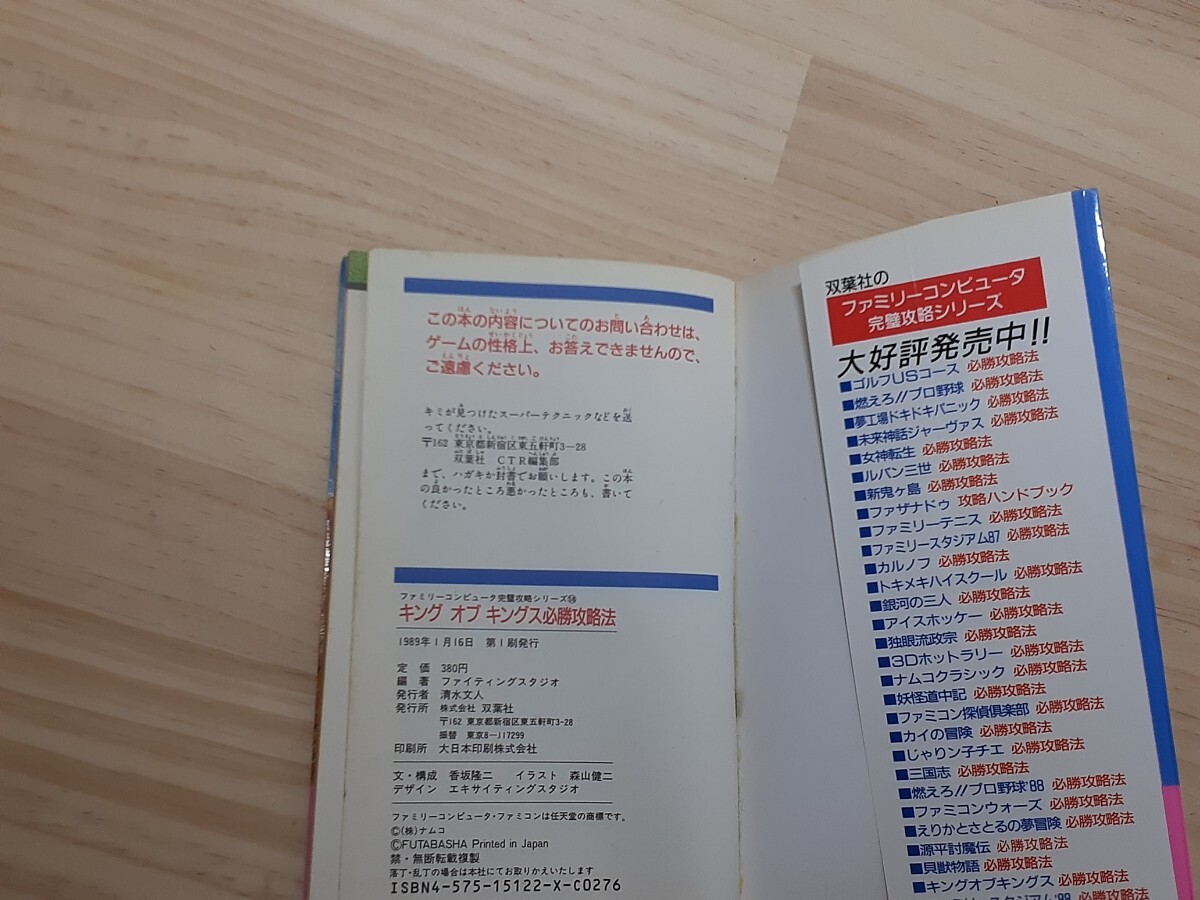 この本の内容についてのお問い合わせは、
ゲームの性格上、お答えできませんので、
ご遠慮ください。
キミが見つけたスーパーテクニックなどを送
ってください。
〒162 東京都新宿区東五軒町3−28
双葉社 CTR編集部
まで、ハガキか封書でお願いします。この本
の良かったところ悪かったところも、書いて
ください。
ファミリーコンピュータ完璧攻略シリーズ
キング オブ キングス必勝攻略法
1989年1月16日 第1刷発行
定 価 380円
編 著 ファイティングスタジオ
発行者 清水文人
発行所 株式会社 双葉社
〒162 東京都新宿区東五軒町3-28
振替 東京8−117299
印刷所 大日本印刷株式会社
文・構成 香坂隆二 イラスト 森山健二
デザイン エキサイティングスタジオ
ファミリーコンピュータ・ファミコンは任天堂の商標です。
©(株)ナムコ
©FUTABASHA Printed in Japan
禁・無断転載複製
落丁・乱丁の場合は本社にてお取りかえいたします
ISBN4-575-15122-X-C0276
双葉社の
ファミリーコンピュータ
完璧攻略シリーズ
大好評発売中!!
■ゴルフUSコース 必勝攻略法
■燃えろ!!プロ野球 必勝攻略法
■夢工場ドキドキパニック 必勝攻略法
■未来神話ジャーヴァス 必勝攻略法
■女神転生 必勝攻略法
■ルパン三世 必勝攻略法
■新鬼ヶ島 必勝攻略法
■ファザナドゥ 攻略ハンドブック
■ファミリーテニス 必勝攻略法
■ファミリースタジアム87 必勝攻略法
■カルノフ 必勝攻略法
■トキメキハイスクール 必勝攻略法
■銀河の三人 必勝攻略法
■アイスホッケー 必勝攻略法
■独眼流政宗 必勝攻略法
■3Dホットラリー 必勝攻略法
■ナムコクラシック 必勝攻略法
■妖怪道中記 必勝攻略法
■ファミコン探偵倶楽部 必勝攻略法
■カイの冒険 必勝攻略法
■じゃりン子チエ 必勝攻略法
■三国志 必勝攻略法
■燃えろ!!プロ野球'88 必勝攻略法
■ファミコンウォーズ 必勝攻略法
■えりかとさとるの夢冒険 必勝攻略法
■源平討魔伝 必勝攻略法
■貝獣物語 必勝攻略法
■キングオブキングス 必勝攻略法